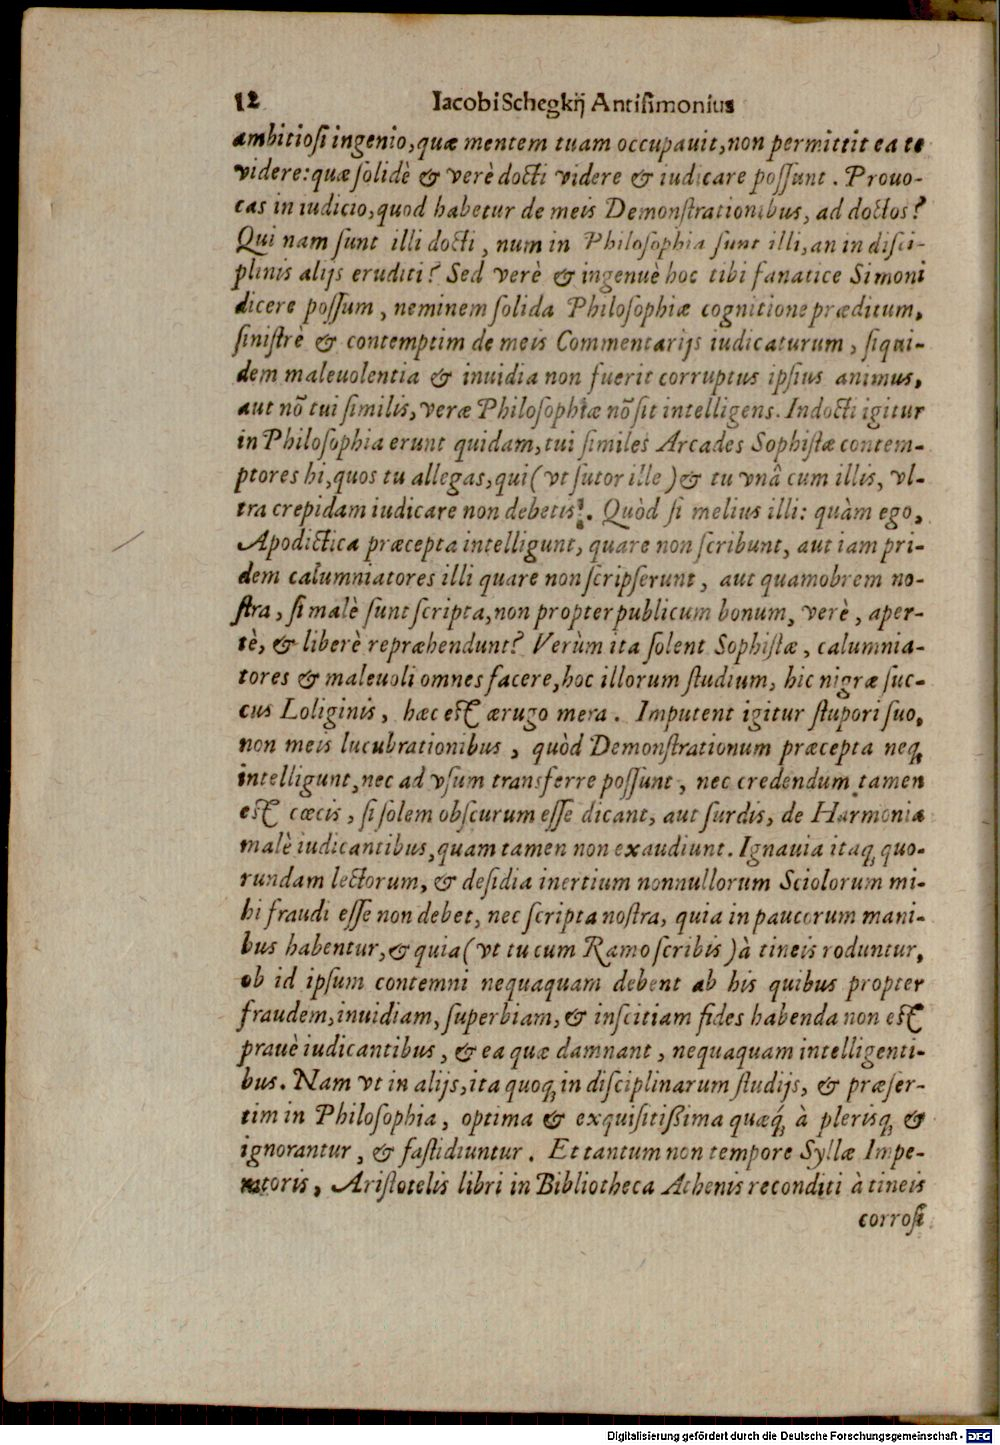 12 Iacobi Schegkij Antisimonius
ambitiosi ingenio, quæ mentem tuam occupauit, non permittit ea te
videre: quæ solidè & verè docti videre & iudicare possunt. Prouo-
cas in iudicio, quod habetur de meis Demonstrationibus, ad doctos?
Qui nam sunt illi docti, num in Philosophia sunt illi, an in disci-
plinis alijs eruditi? Sed verè & ingenuè hoc tibi fanatice Simoni
dicere possum, neminem solida Philosophiæ cognitione præditum,
sinistrè & contemptim de meis Commentarijs iudicaturum, siqui-
dem maleuolentia & inuidia non fuerit corruptus ipsius animus,
aut nõ tui similis, veræ Philosophiæ nõ sit intelligens. Indocti igitur
in Philosophia erunt quidam, tui similes Arcades Sophistæ contem-
ptores hi, quos tu allegas, qui (vt sutor ille) & tu vnâ cum illis, vl-
tra crepidam iudicare non debetis. Quòd si melius illi: quàm ego,
Apodictica præcepta intelligunt, quare non scribunt, aut iam pri-
dem calumniatores illi quare non scripserunt, aut quamobrem no-
stra, si malè sunt scripta, non propter publicum bonum, verè, aper-
tè, & liberè repræhendunt? Verùm ita solent Sophistæ, calumnia-
tores & maleuoli omnes facere, hoc illorum studium, hic nigræ suc-
cus Loliginis, hæc est ærugo mera. Imputent igitur stupori suo,
non meis lucubrationibus, quòd Demonstrationum præcepta neq;
intelligunt, nec ad vsum transferre possunt, nec credendum tamen
est cœcis, si solem obscurum esse dicant, aut surdis, de Harmonia
malè iudicantibus, quam tamen non exaudiunt. Ignauia itaq; quo-
rundam lectorum, & desidia inertium nonnullorum Sciolorum mi-
hi fraudi esse non debet, nec scripta nostra, quia in paucorum mani-
bus habentur, & quia (vt tu cum Ramo scribis) à tineis roduntur,
ob id ipsum contemni nequaquam debent ab his quibus propter
fraudem, inuidiam, superbiam, & inscitiam fides habenda non est
prauè iudicantibus, & ea quæ damnant, nequaquam intelligenti-
bus. Nam vt in alijs, ita quoq; in disciplinarum studijs, & præser-
tim in Philosophia, optima & exquisitißima quæq́; à plerisq; &
ignorantur, & fastidiuntur. Et tantum non tempore Syllæ Impe-
ratoris, Aristotelis libri in Bibliotheca Athenis reconditi à tineis
corrosi
Digitalisierung gefördert durch die Deutsche Forschungsgemeinschaft - DFG